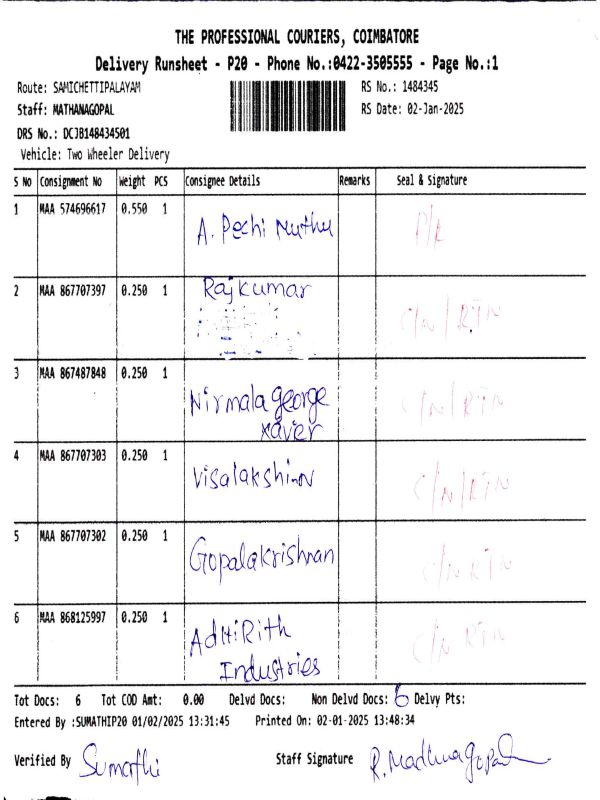 THE PROFESSIONAL COURIERS, COIMBATORE
Delivery Runsheet - P20 - Phone No.:0422-3505555 - Page No.:1
Route: SAMICHETTIPALAYAM RS No.: 1484345
Staff: MATHANAGOPAL RS Date: 02-Jan-2025
DRS No.: DCJB148434501
Vehicle: Two Wheeler Delivery
S No Consignment No Weight PCS Consignee Details Remarks Seal & Signature
1 MAA 574696617 0.550 1 A. Pechi Muthu
2 MAA 867707397 0.250 1 Rajkumar C/N/RTN
3 MAA 867487848 0.250 1 Nirmala George C/N/RTN
Xavier
4 MAA 867707303 0.250 1 Visalakshi C/N/RTN
5 MAA 867707302 0.250 1 Gopalakrishnan C/N RTN
6 MAA 868125997 0.250 1 AdHiRith C/N RTN
Industries
Tot Docs: 6 Tot COD Amt: 0.00 Delvd Docs: Non Delvd Docs: 6 Delvy Pts:
Entered By :SUMATHIP20 01/02/2025 13:31:45 Printed On: 02-01-2025 13:48:34
Verified By Sumathi Staff Signature R. Madhnagopal